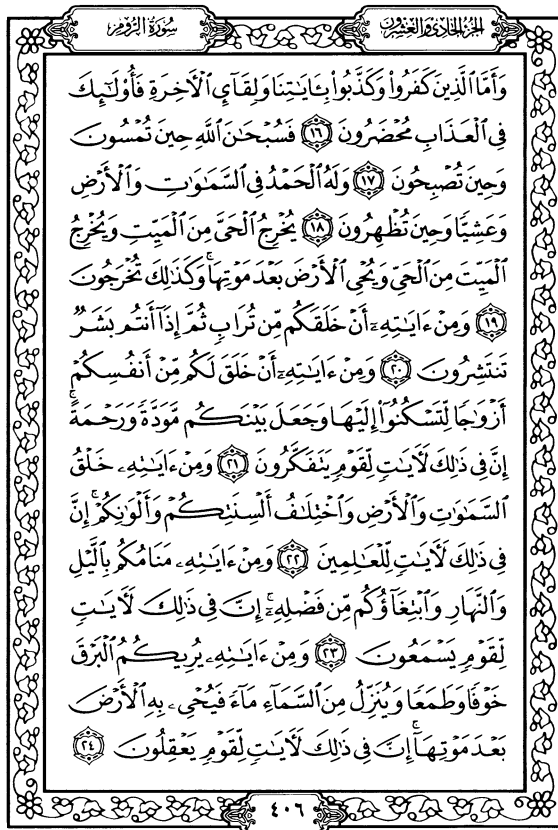 الجزء الحادي والعشرون
سورة الروم
وَأَمَّا ٱلَّذِينَ كَفَرُوا۟ وَكَذَّبُوا۟ بِـَٔايَـٰتِنَا وَلِقَآئِ ٱلْـَٔاخِرَةِ فَأُو۟لَـٰٓئِكَ
فِى ٱلْعَذَابِ مُحْضَرُونَ ١٦ فَسُبْحَـٰنَ ٱللَّهِ حِينَ تُمْسُونَ
وَحِينَ تُصْبِحُونَ ١٧ وَلَهُ ٱلْحَمْدُ فِى ٱلسَّمَـٰوَٰتِ وَٱلْأَرْضِ
وَعَشِيًّا وَحِينَ تُظْهِرُونَ ١٨ يُخْرِجُ ٱلْحَىَّ مِنَ ٱلْمَيِّتِ وَيُخْرِجُ
ٱلْمَيِّتَ مِنَ ٱلْحَىِّ وَيُحْىِ ٱلْأَرْضَ بَعْدَ مَوْتِهَا ۚ وَكَذَٰلِكَ تُخْرَجُونَ
١٩ وَمِنْ ءَايَـٰتِهِۦٓ أَنْ خَلَقَكُم مِّن تُرَابٍ ثُمَّ إِذَآ أَنتُم بَشَرٌ
تَنتَشِرُونَ ٢٠ وَمِنْ ءَايَـٰتِهِۦٓ أَنْ خَلَقَ لَكُم مِّنْ أَنفُسِكُمْ
أَزْوَٰجًا لِّتَسْكُنُوٓا۟ إِلَيْهَا وَجَعَلَ بَيْنَكُم مَّوَدَّةً وَرَحْمَةً ۚ
إِنَّ فِى ذَٰلِكَ لَـَٔايَـٰتٍ لِّقَوْمٍ يَتَفَكَّرُونَ ٢١ وَمِنْ ءَايَـٰتِهِۦ خَلْقُ
ٱلسَّمَـٰوَٰتِ وَٱلْأَرْضِ وَٱخْتِلَـٰفُ أَلْسِنَتِكُمْ وَأَلْوَٰنِكُمْ ۚ إِنَّ
فِى ذَٰلِكَ لَـَٔايَـٰتٍ لِّلْعَـٰلِمِينَ ٢٢ وَمِنْ ءَايَـٰتِهِۦ مَنَامُكُم بِٱلَّيْلِ
وَٱلنَّهَارِ وَٱبْتِغَآؤُكُم مِّن فَضْلِهِۦٓ ۚ إِنَّ فِى ذَٰلِكَ لَـَٔايَـٰتٍ
لِّقَوْمٍ يَسْمَعُونَ ٢٣ وَمِنْ ءَايَـٰتِهِۦ يُرِيكُمُ ٱلْبَرْقَ
خَوْفًا وَطَمَعًا وَيُنَزِّلُ مِنَ ٱلسَّمَآءِ مَآءً فَيُحْىِۦ بِهِ ٱلْأَرْضَ
بَعْدَ مَوْتِهَآ ۚ إِنَّ فِى ذَٰلِكَ لَـَٔايَـٰتٍ لِّقَوْمٍ يَعْقِلُونَ ٢٤
٤٠٦